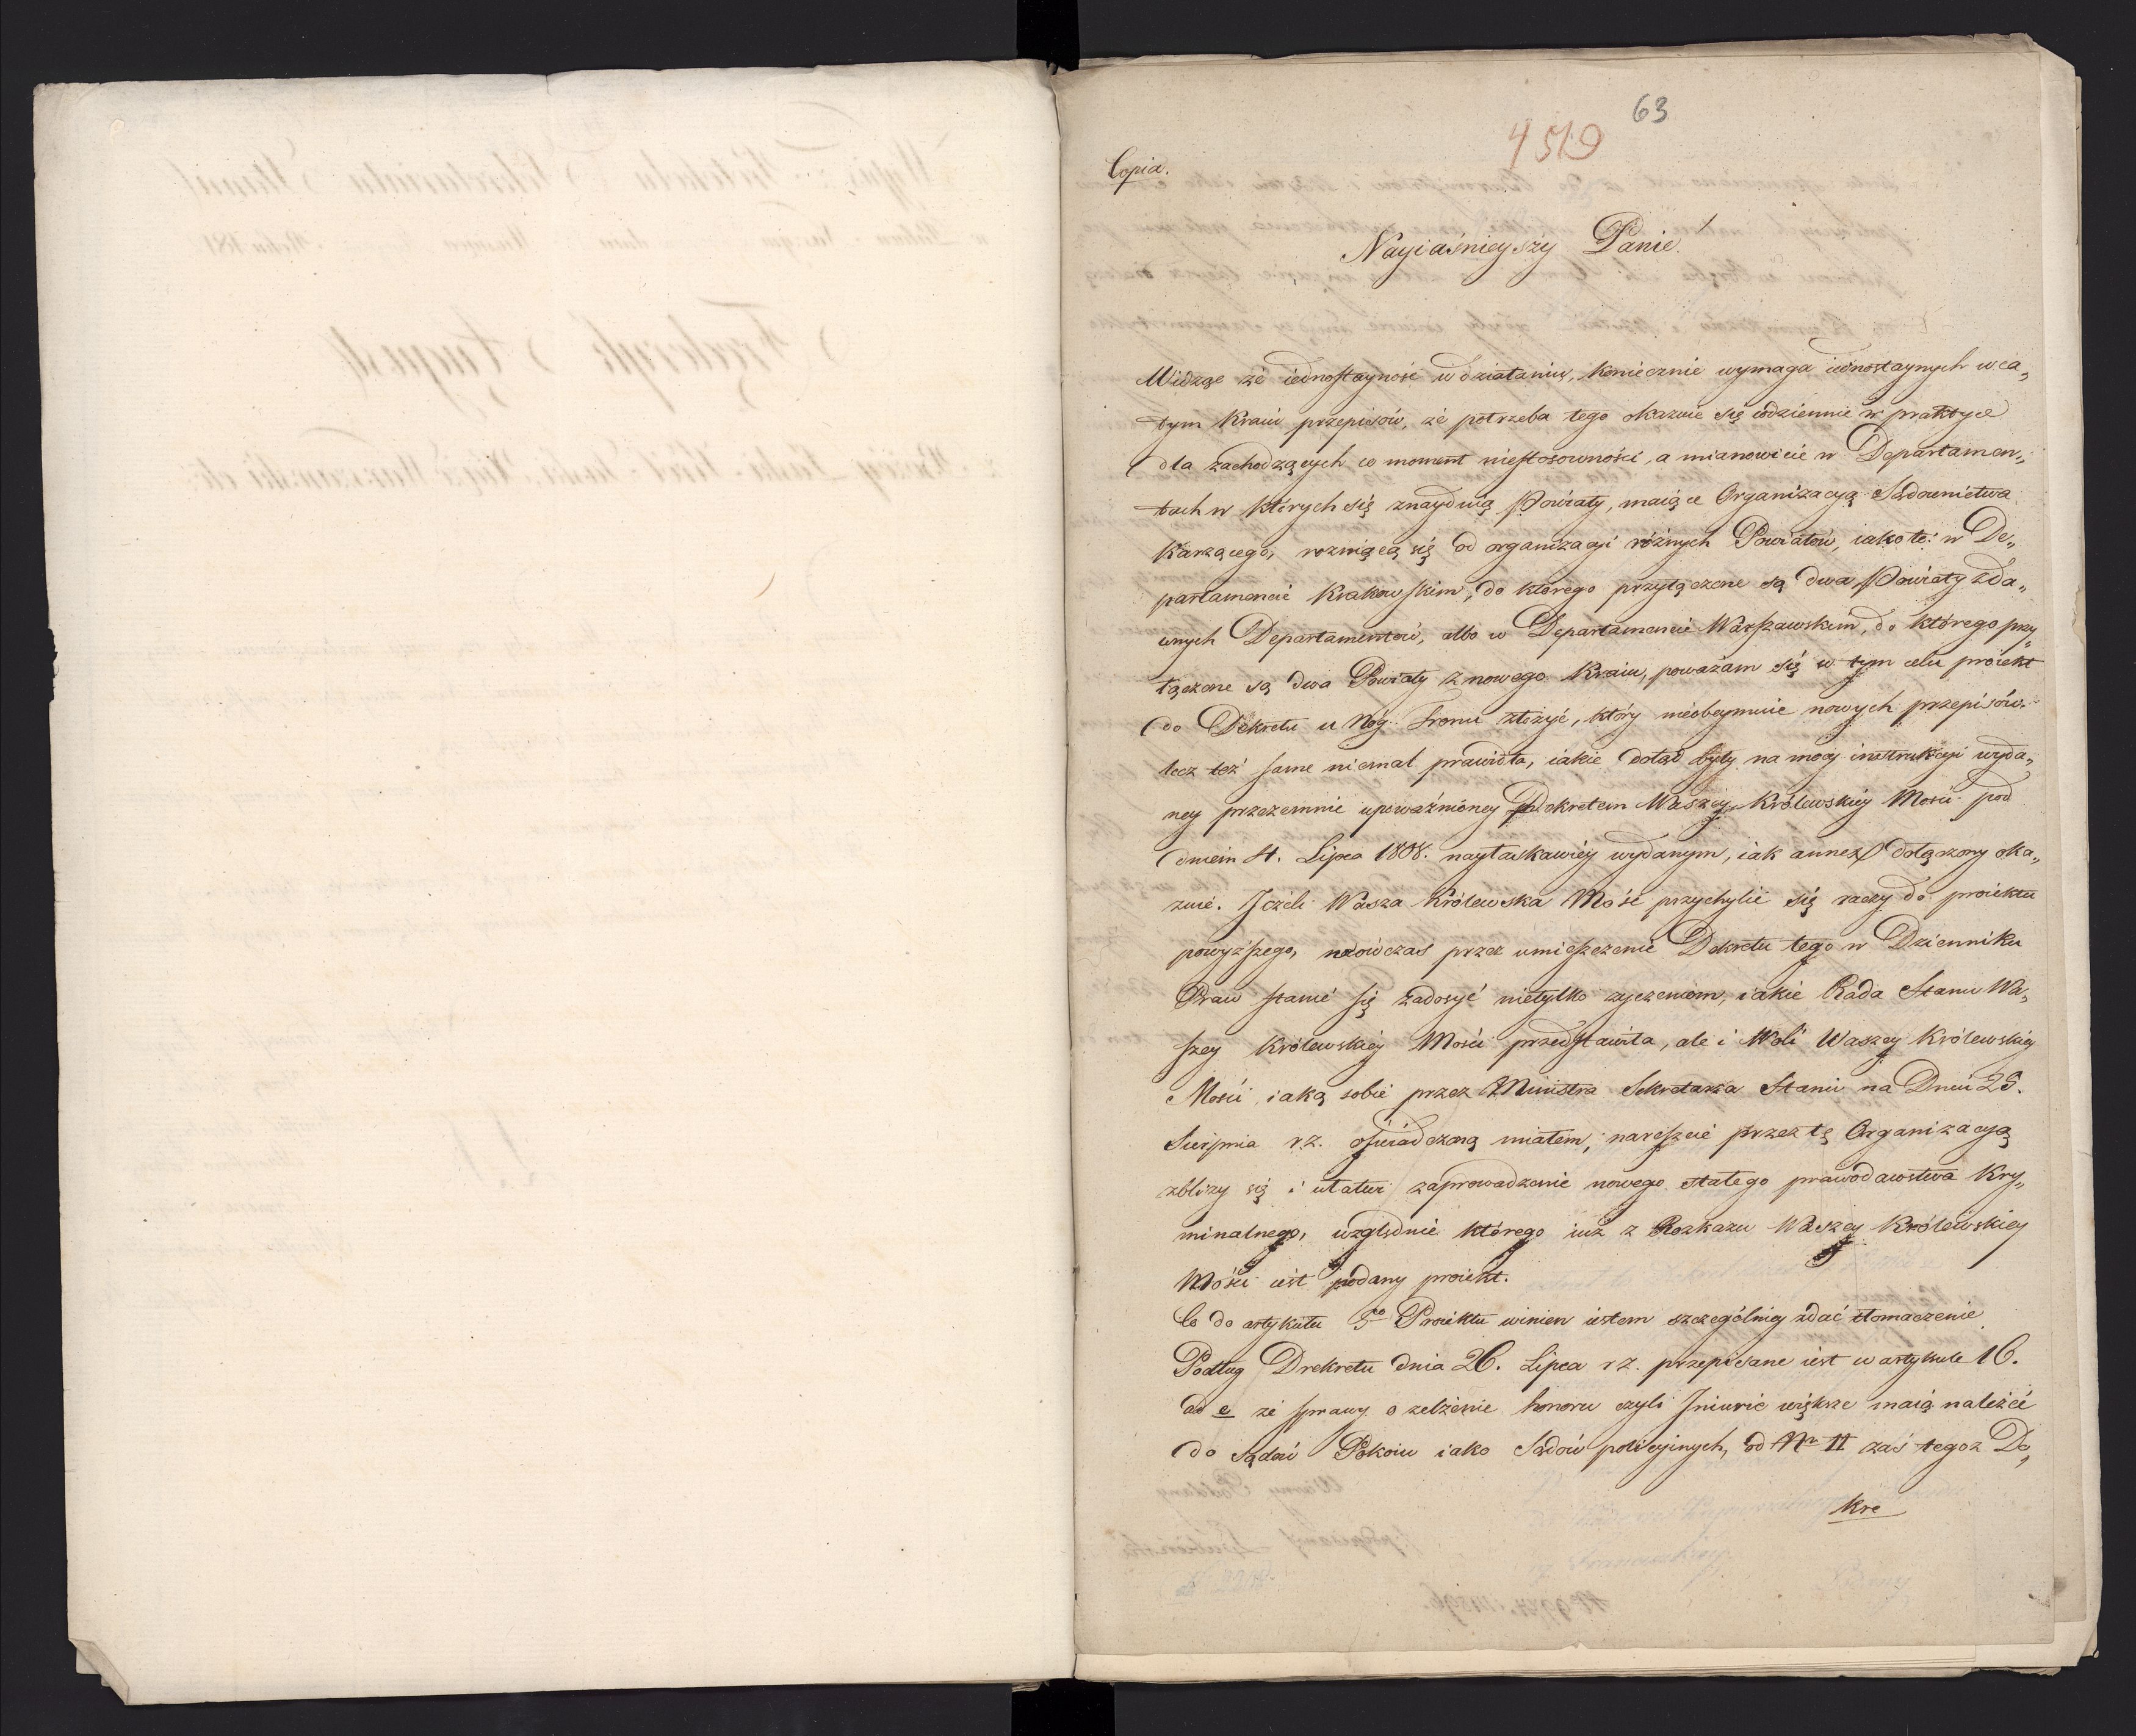 63
4519
Copia.
Nayiaśnieyszy Panie!
Widząc że iednostayność w działaniu, koniecznie wymaga iednostaynych w ca„
łym Kraiu przepisów, że potrzeba tego okazuie się codziennie w praktyce
dla zachodzących co moment niestosowności, a mianowicie w Departamen„
tach w których się znayduią Powiaty, maiące Organizacyą Sądownictwa
Karzącego, rozniącą się od organizacyi różnych Powiatów, iako to: w De„
partamencie Krakowskim, do którego przyłączone są dwa Powiaty z da„
wnych Departamentów, albo w Departamencie Warszawskim, do którego przy„
łączone są dwa Powiaty z nowego Kraiu, poważam się w tym celu proiekt
do Dekretu u Nóg Tronu złożyć, który nieobeymuie nowych przepisów.
lecz też same niemal prawidła, iakie dotąd były na mocy instrukcyi wyda„
ney przezemnie upoważnioney Dekretem Waszey Królewskiey Mości pod
dniem 4. Lipca 1808. nayłaskawiey wydanym, iak annex dołączony oka„
zuie. Jeżeli Wasza Królewska Mość przychylić się raczy do proiektu
powyższego, nadówczas przez umieszczenie Dekretu tego w Dzienniku
Praw stanie się zadosyć nietylko życzeniom, iakie Rada Stanu Wa„
szey Królewskiey Mości przedstawiła, ale i Woli Waszey Królewskiey
Mości iaką sobie przez Ministra Sekretarza Stanu na Dniu 25.
Sierpnia r.z. oświadczoną miałem; nareszcie przez tę Organizacyą
zbliży się i ułatwi zaprowadzenie nowego stałego prawodawstwa Kry„
minalnego, względnie którego iuż z Rozkazu Waszey Królewskiey
Mości iest podany proiekt.
Co do artykułu 5go Proiektu winien iestem szczególniey zdać tłomaczenie.
Podług Drekretu dnia 26. Lipca r.z. przepisane iest w artykule 16.
ad e że sprawy o zelżenie honoru czyli Iniurie większe maią należeć
do Sądów Pokoiu iako Sądów policyinych, od Nr II zaś tegoż De„
kre